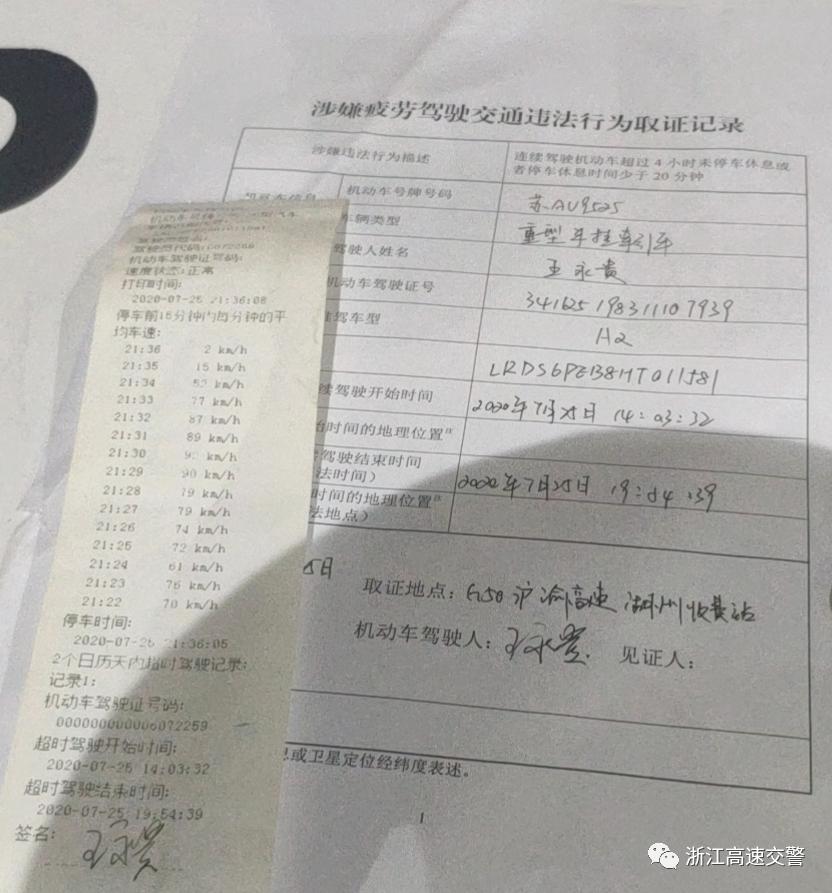 涉嫌疲劳驾驶交通违法行为取证记录
涉嫌违法行为描述
连续驾驶机动车超过4小时未停车休息或
者停车休息时间少于20分钟
机动车号牌号码
苏AU9525
车辆类型
重型半挂牵引车
驾驶人姓名
王永贵
机动车驾驶证号
341625198311107939
准驾车型
A2
LRDS6PEB8HT011581
续驾驶开始时间
2020年7月25日 14:03:32
始时间的地理位置
驾驶结束时间
法时间)
2020年7月25日 19:54:39
时间的地理位置
法地点)
5日
取证地点:G50沪渝高速湖州收费站
机动车驾驶人:王永贵 见证人:
息或卫星定位经纬度表述。
1
机动车驾驶证号码:
速度状态:正常
打印时间:
2020-07-25 21:36:08
停车前15分钟内每分钟的平
均车速:
21:36 2 km/h
21:35 15 km/h
21:34 52 km/h
21:33 77 km/h
21:32 87 km/h
21:31 89 km/h
21:30 km/h
21:29 90 km/h
21:28 79 km/h
21:27 79 km/h
21:26 74 km/h
21:25 72 km/h
21:24 61 km/h
21:23 76 km/h
21:22 70 km/h
停车时间:
2020-07-25 21:36:05
2个日历天内超时驾驶记录:
记录1:
机动车驾驶证号码:
000000000006072259
超时驾驶开始时间:
2020-07-25 14:03:32
超时驾驶结束时间:
2020-07-25 19:54:39
签名:
王永贵
浙江高速交警